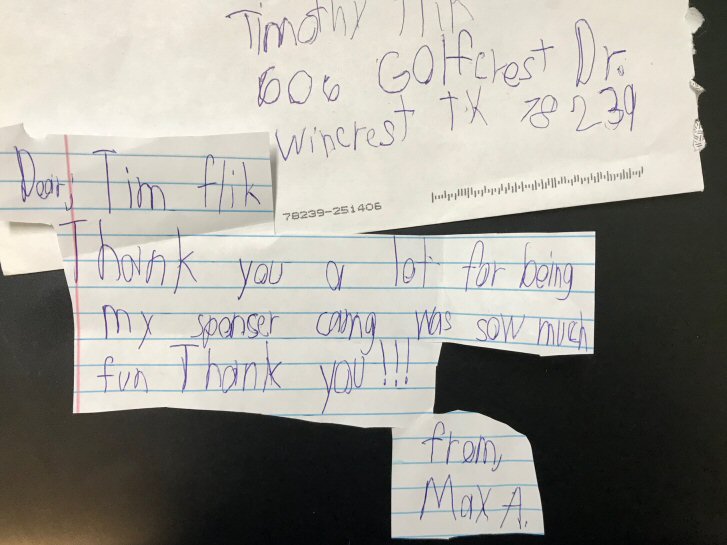 Timothy Flik
606 Golfcrest Dr.
Wincrest TX 78239
78239-251406
Dear, Tim flik
Thank you a lot for being
my sponser camg was sow much
fun Thank you!!!
from,
Max A.